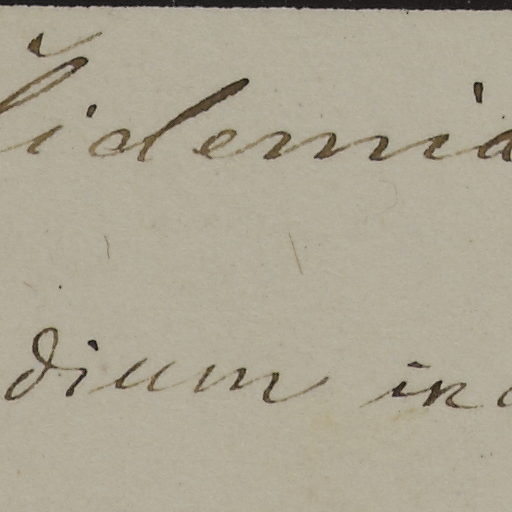 idemia
dium in